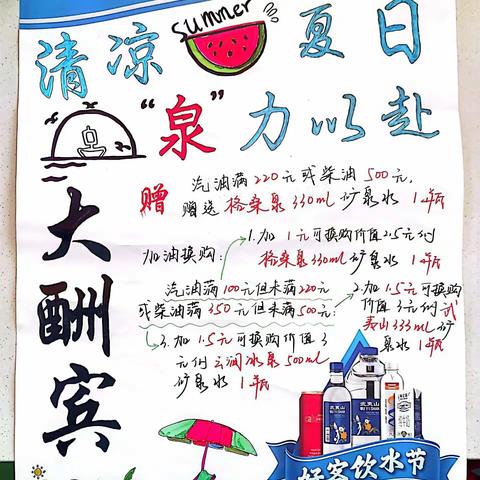 summer
清凉 夏日
“泉”力以赴
大酬宾
赠 汽油满220元或柴油500元,
赠送格桑泉330ml矿泉水1瓶
加油换购:
1.加1元可换购价值2.5元的
格桑泉330ml矿泉水1瓶
汽油满100元但未满220元
或柴油满350元但未满500元:
2.加1.5元可换购
价值3元的武
夷山333ml矿
泉水1瓶
3.加1.5元可换购价值3
元的云润冰泉500ml
矿泉水1瓶
武夷山
好客饮水节